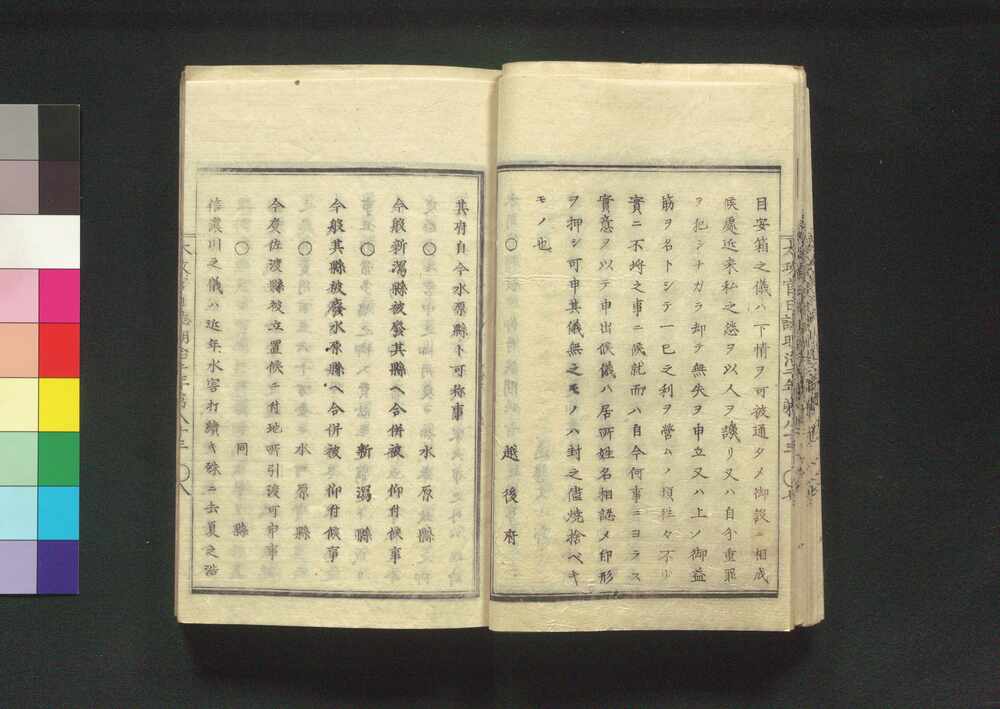 目安箱之儀ハ下情ヲ可被通タメ御設ニ相成
候處近来私之怨ヲ以人ヲ譏リ又ハ自分重罪
ヲ犯シナガラ却テ無失ヲ申立又ハ上ノ御益
筋ヲ名トシテ一已之利ヲ營ムノ類往々不少
實ニ不埒之事ニ候就而ハ自今何事ニヨラス
實意ヲ以テ申出候儀ハ居所姓名相認メ印形
ヲ押シ可申其儀無之モノハ封之儘燒捨ベキ
モノ也
○ 越後府
其府自今水原縣ト可称事
○ 水原縣
今般新潟縣被廢其縣ヘ合併被 仰付候事
○ 新潟縣
今般其縣被廢水原縣ヘ合併被 仰付候事
○ 水原縣
今度佐渡縣被立置候ニ付地所引渡可申事
○ 同縣
信濃川之儀ハ近年水害打續キ殊ニ去夏之洪